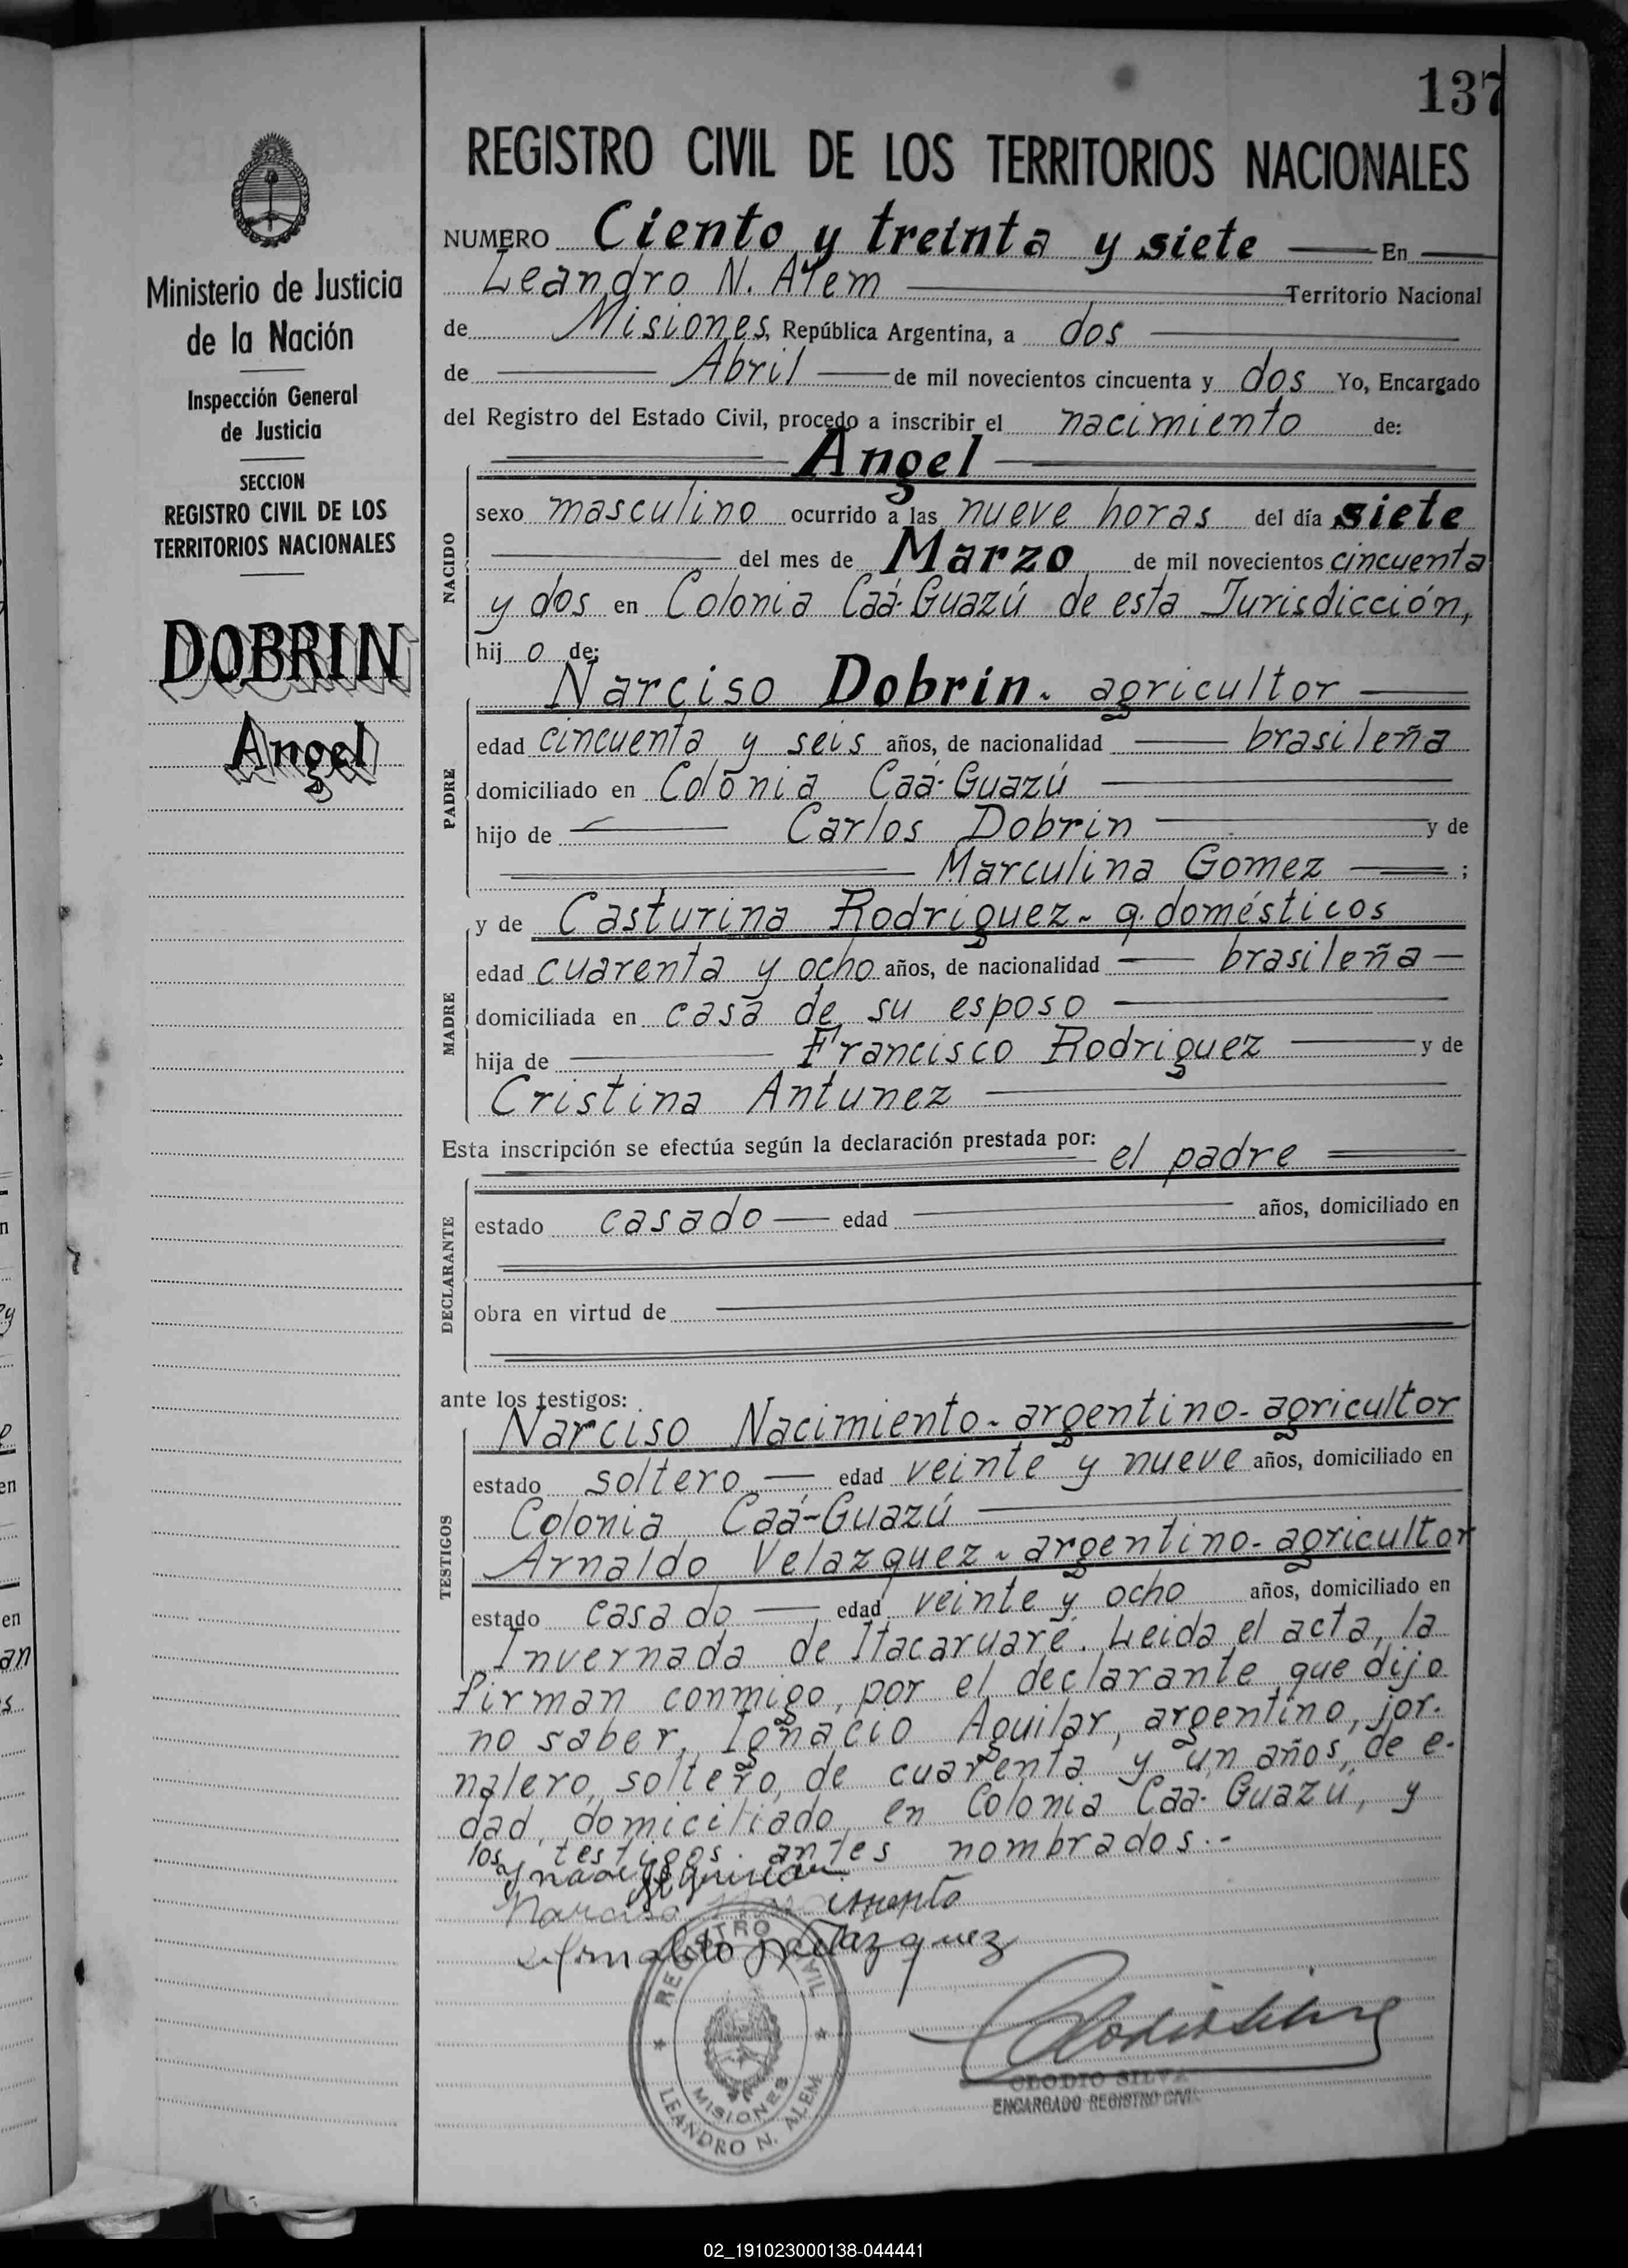 137
REGISTRO CIVIL DE LOS TERRITORIOS NACIONALES
Ministerio de Justicia
de la Nación
Inspección General
de Justicia
SECCION
REGISTRO CIVIL DE LOS
TERRITORIOS NACIONALES
DOBRIN
Angel
NUMERO Ciento y treinta y siete En
Leandro N. Alem Territorio Nacional
de Misiones, República Argentina, a dos
de Abril de mil novecientos cincuenta y dos Yo, Encargado
del Registro del Estado Civil, procedo a inscribir el nacimiento de:
Angel
NACIDO
sexo masculino ocurrido a las nueve horas del día siete
del mes de Marzo de mil novecientos cincuenta
y dos en Colonia Caá-Guazú de esta Jurisdicción,
hij o de:
Narciso Dobrin- agricultor
PADRE
edad cincuenta y seis años, de nacionalidad brasileña
domiciliado en Colonia Caá-Guazú
hijo de Carlos Dobrin y de
Marculina Gomez ;
y de Casturina Rodriguez- q. domésticos
MADRE
edad cuarenta y ocho años, de nacionalidad brasileña
domiciliada en casa de su esposo
hija de Francisco Rodriguez y de
Cristina Antunez
Esta inscripción se efectúa según la declaración prestada por: el padre
DECLARANTE
estado casado edad años, domiciliado en
obra en virtud de
ante los testigos:
Narciso Nacimiento- argentino- agricultor
TESTIGOS
estado soltero edad veinte y nueve años, domiciliado en
Colonia Caá-Guazú
Arnaldo Velazquez- argentino- agricultor
estado casado edad veinte y ocho años, domiciliado en
Invernada de Itacaruaré. Leida el acta, la
firman conmigo, por el declarante que dijo
no saber, Ignacio Aguilar, argentino, jor-
nalero, soltero, de cuarenta y un años, de e-
dad, domiciliado en Colonia Caá-Guazú, y
los testigos antes nombrados.-
Narciso
Arnaldo Velazquez
REGISTRO CIVIL
MISIONES
LEANDRO N. ALEM
CLODIO SILVA
ENCARGADO REGISTRO CIVIL
02_191023000138-044441